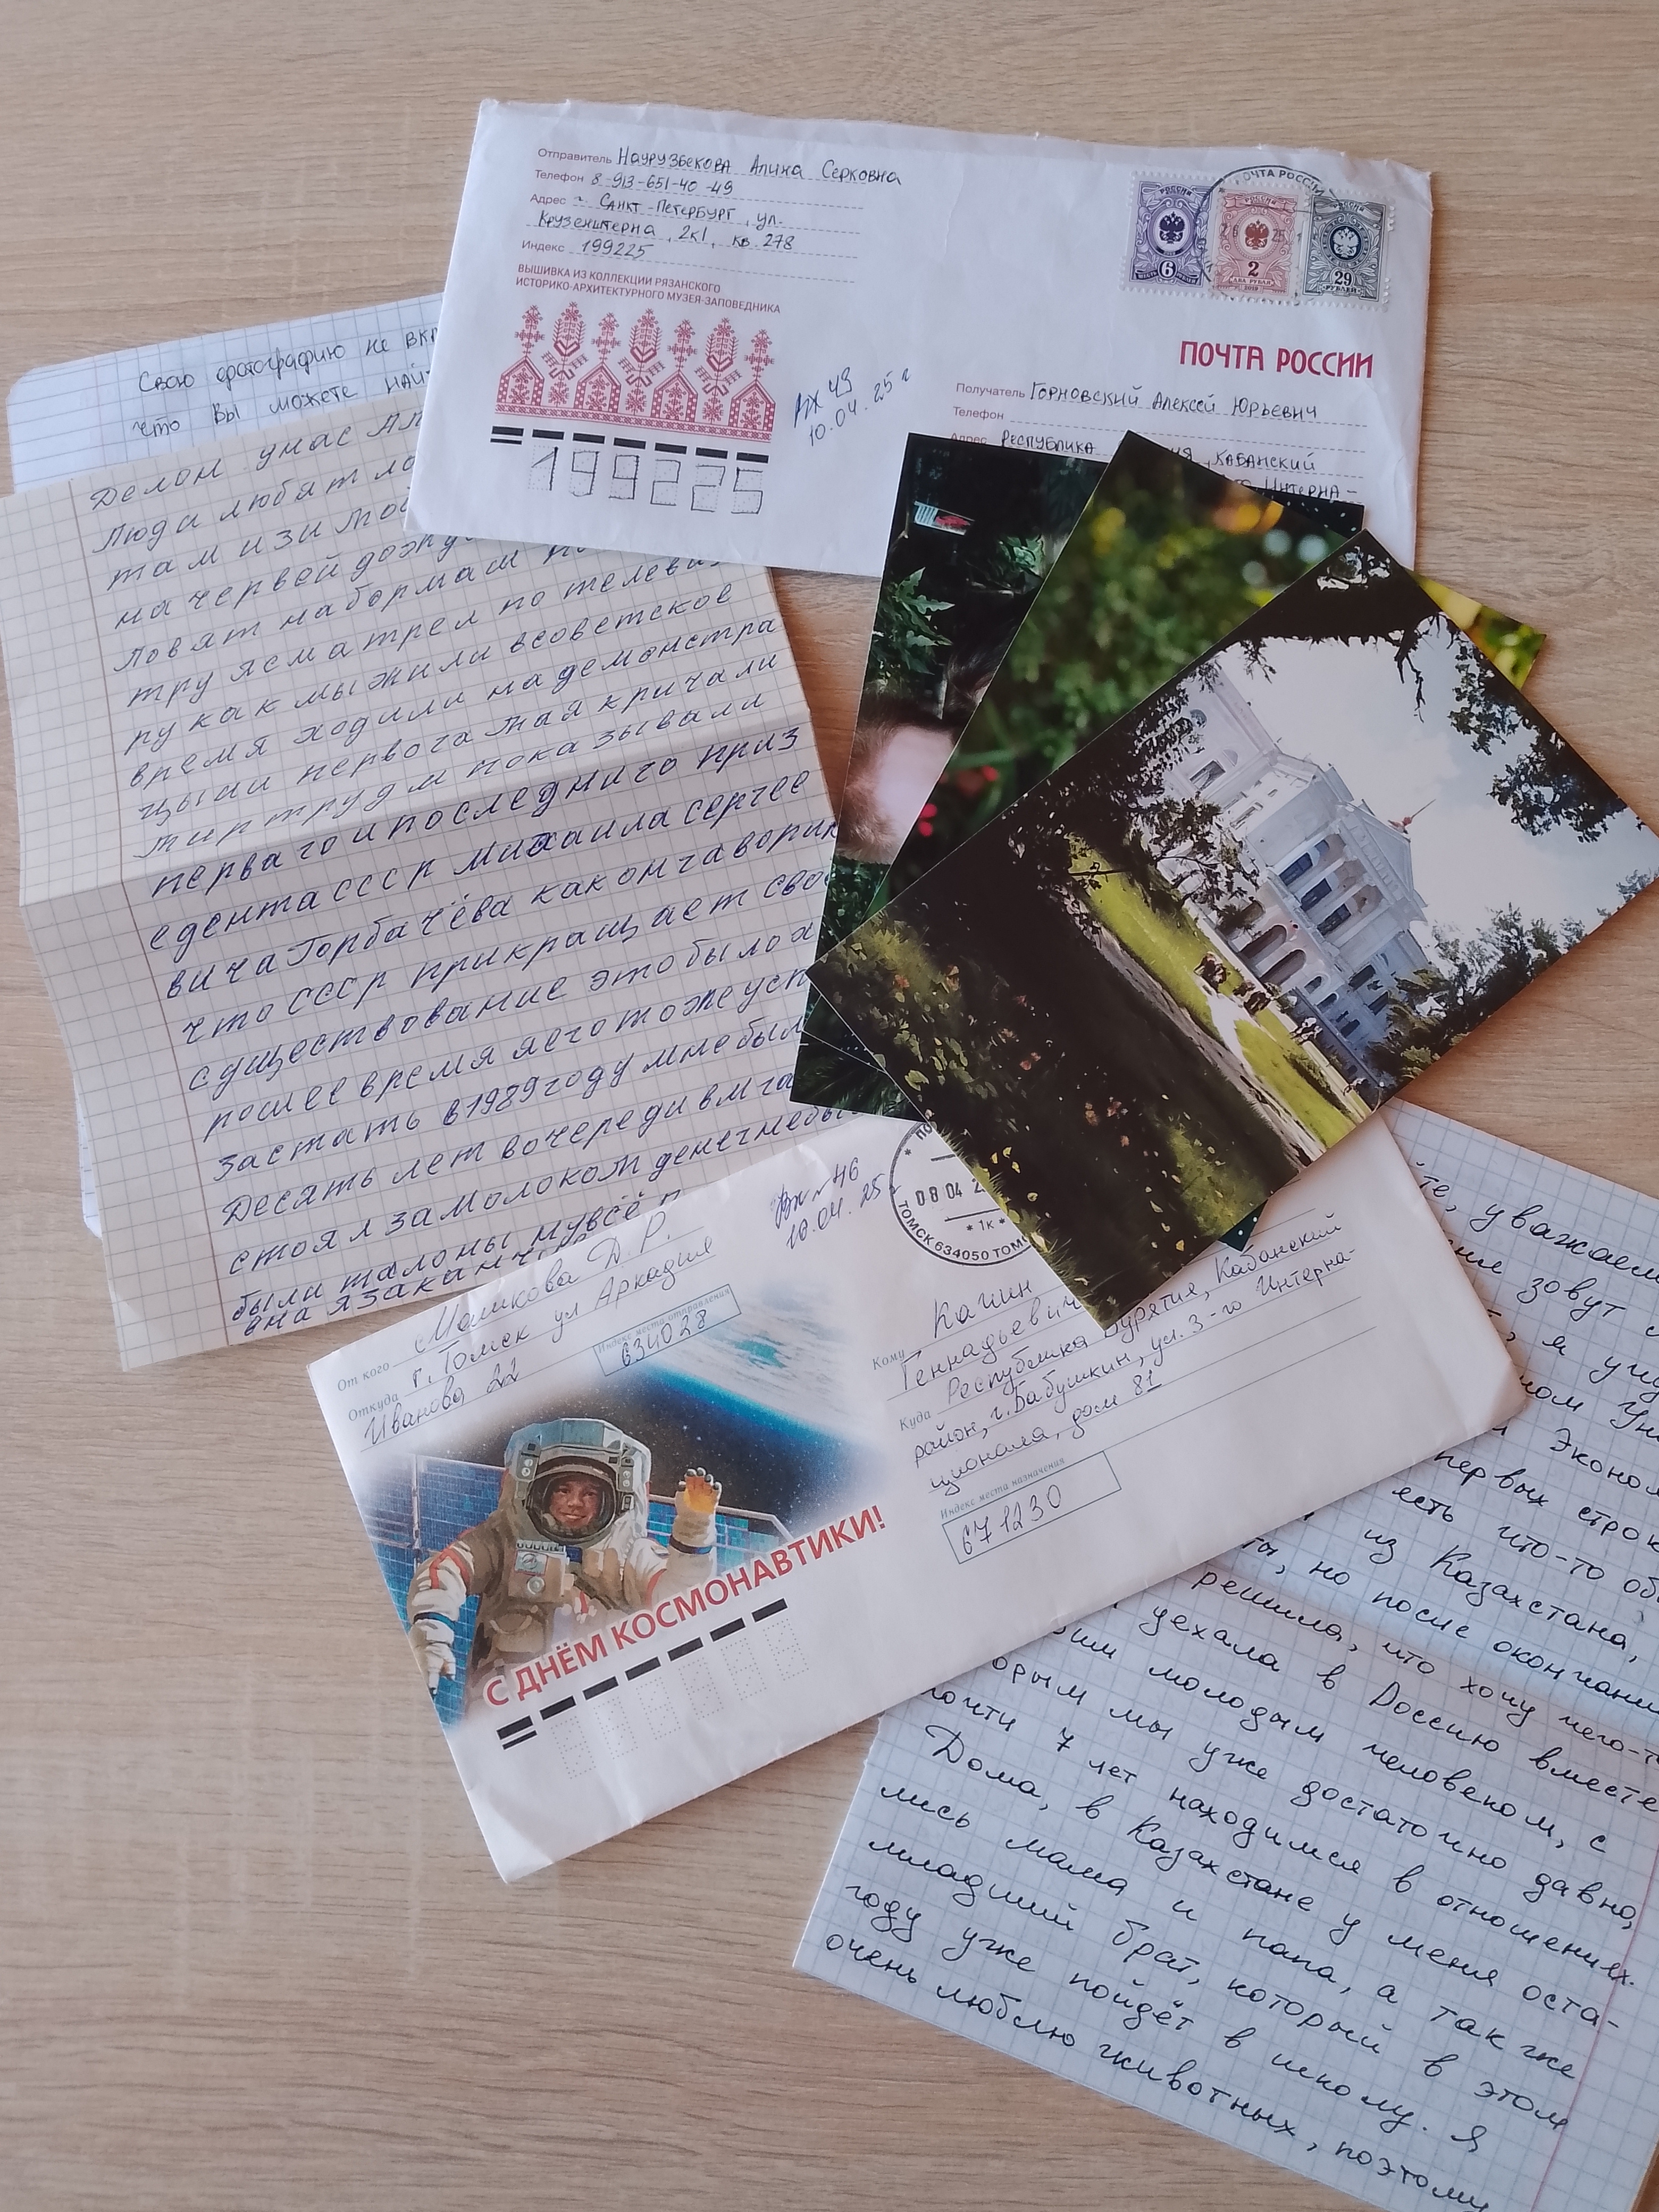 Отправитель Наурузбекова Алина Серковна
Телефон 8-913-651-40-49
Адрес г. Санкт-Петербург, ул.
Крузенштерна, 2к1, кв 278
Индекс 199225
ВЫШИВКА ИЗ КОЛЛЕКЦИИ РЯЗАНСКОГО
ИСТОРИКО-АРХИТЕКТУРНОГО МУЗЕЯ-ЗАПОВЕДНИКА
199225
вх 43
10.04.25 г
ПОЧТА РОССИИ
РОССИЯ
6
РОССИЯ
2
ДВА РУБЛЯ
2019
РОССИЯ
29
РУБЛЕЙ
ПОЧТА РОССИИ
Получатель Горновский Алексей Юрьевич
Телефон
Адрес Республика
Кабанский
Интерна-
Свою фотографию не
что Вы можете
Делом унас
Люди любят
там изи
на червей
ловят на бормаш
тру ясматрел по
ру как мы жили всоветское
время ходили надемонстра
цыаи первога мая кричали
мир труд м показывали
перваго и последнига през
едента ссср михаила сергее
вича Горбачёва как он гаворил
что ссср прикращает сво
существование это было х
ремя яего тоже усп
застать в1989году мне был
Десять лет вочереди
стоял за молоком денег небы
были талоны нувсё
она язакан
От кого Машкова Д.Р.
Откуда г. Томск ул Аркадия
Иванова 22
Индекс места отправления
634028
вх № 46
10.04.25
08 04 2
* 1к *
ТОМСК 634050 ТОМ
Кому Капин
Геннадьевич
Куда Республика Бурятия, Кабанский
район, г. Бабушкин, ул. 3-го Интерна-
ционала, дом 81
Индекс места назначения
671230
С ДНЁМ КОСМОНАВТИКИ!
те, уважаем
зовут
, я учу
ном Ун
Эконом
первых строк
есть что-то об
из Казахстана,
ты, но после окончани
решила, что хочу чего-т
уехала в Россию вместе
молодым человеком, с
орым мы уже достаточно давно,
почти 7 лет находимся в отношениях.
Дома, в Казахстане у меня оста-
лись мама и папа, а также
младший брат, который в этом
году уже пойдёт в школу. Я
очень люблю животных, поэтому